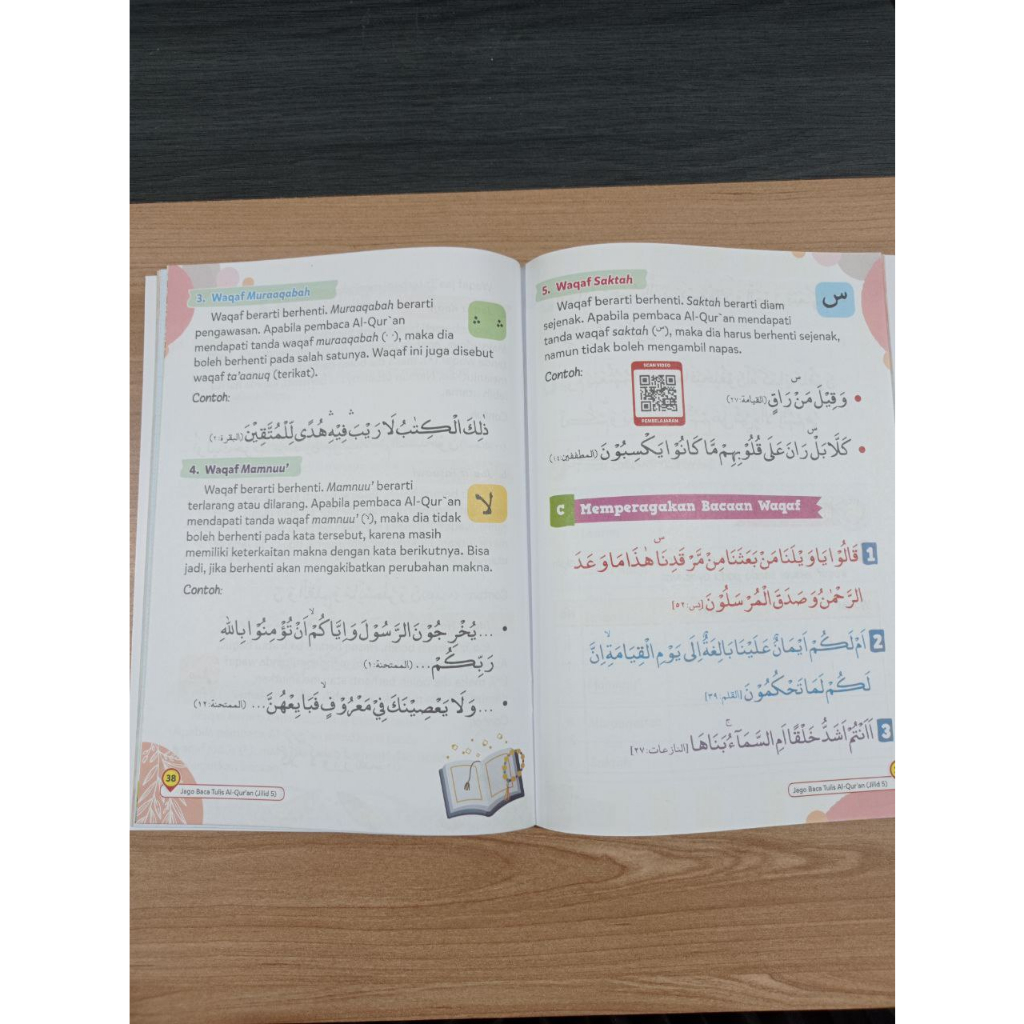 3. Waqaf Muraaqabah
Waqaf berarti berhenti. Muraaqabah berarti
pengawasan. Apabila pembaca Al-Qur`an
mendapati tanda waqaf muraaqabah (ۛ ۛ), maka dia
boleh berhenti pada salah satunya. Waqaf ini juga disebut
waqaf ta'aanuq (terikat).
Contoh:
ذٰلِكَ الْكِتٰبُ لَا رَيْبَ ۛ فِيْهِ ۛ هُدًى لِّلْمُتَّقِيْنَ (البقرة: ٢)
4. Waqaf Mamnuu'
Waqaf berarti berhenti. Mamnuu' berarti
terlarang atau dilarang. Apabila pembaca Al-Qur`an
mendapati tanda waqaf mamnuu' (ۙ), maka dia tidak
boleh berhenti pada kata tersebut, karena masih
memiliki keterkaitan makna dengan kata berikutnya. Bisa
jadi, jika berhenti akan mengakibatkan perubahan makna.
لا
Contoh:
• ... يُخْرِجُوْنَ الرَّسُوْلَ وَاِيَّاكُمْ ۙ اَنْ تُؤْمِنُوْا بِاللّٰهِ
رَبِّكُمْ ... (الممتحنة: ١)
• ... وَلَا يَعْصِيْنَكَ فِيْ مَعْرُوْفٍ ۙ فَبَايِعْهُنَّ ... (الممتحنة: ١٢)
38
Jago Baca Tulis Al-Qur'an (Jilid 5)
5. Waqaf Saktah
س
Waqaf berarti berhenti. Saktah berarti diam
sejenak. Apabila pembaca Al-Qur`an mendapati
tanda waqaf saktah (س), maka dia harus berhenti sejenak,
namun tidak boleh mengambil napas.
Contoh:
SCAN VIDEO
• وَقِيْلَ مَنْ ۜ رَاقٍ (القيامة: ٢٧)
• كَلَّا بَلْ ۜ رَانَ عَلٰى قُلُوْبِهِمْ مَّا كَانُوْا يَكْسِبُوْنَ (المطففين: ١٤)
C Memperagakan Bacaan Waqaf
1 قَالُوْا يَا وَيْلَنَا مَنْ بَعَثَنَا مِنْ مَّرْقَدِنَا ۜ هٰذَا مَا وَعَدَ
الرَّحْمٰنُ وَصَدَقَ الْمُرْسَلُوْنَ [يس: ٥٢]
2 اَمْ لَكُمْ اَيْمَانٌ عَلَيْنَا بَالِغَةٌ اِلٰى يَوْمِ الْقِيَامَةِ ۙ اِنَّ
لَكُمْ لَمَا تَحْكُمُوْنَ [القلم: ٣٩]
3 اَاَنْتُمْ اَشَدُّ خَلْقًا اَمِ السَّمَآءُ ۚ بَنَاهَا [النازعات: ٢٧]
Jago Baca Tulis Al-Qur'an (Jilid 5)